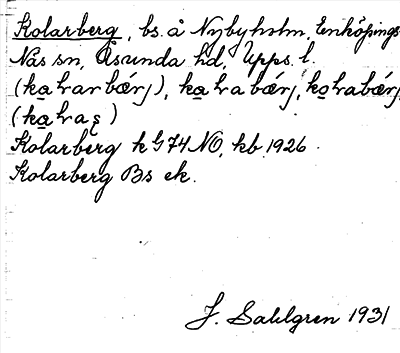 Kolarberg, bs. å Nybyholm, Enköpings-
Näs sn, Åsunda hd, Upps. l.
(kalarbærj), kalabærj, kolabærj,
(kalaʂ)
Kolarberg k G 74 NO, kb 1926.
Kolarberg Bs ek.
J. Sahlgren 1931